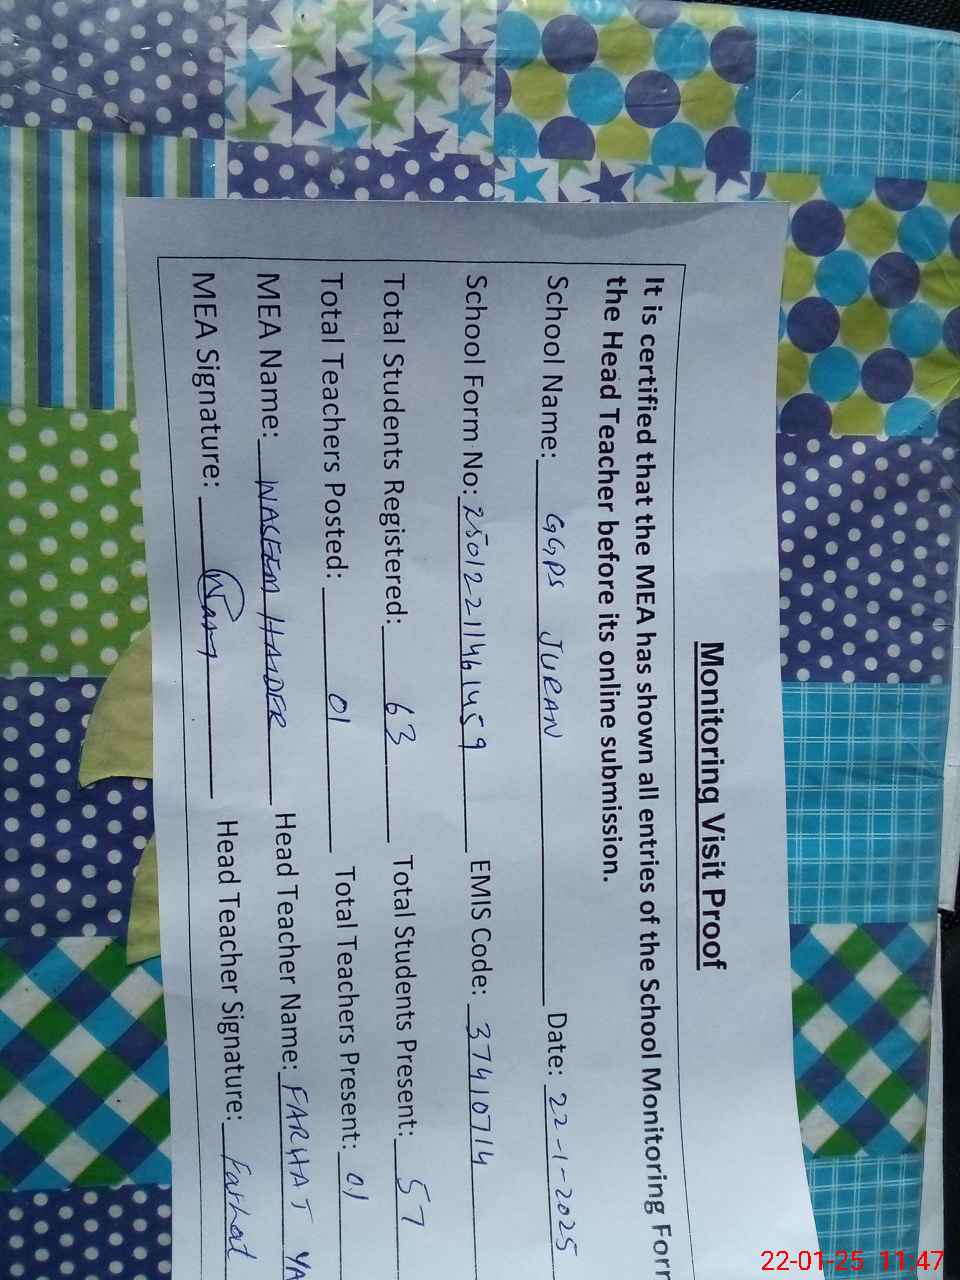 Monitoring Visit Proof
It is certified that the MEA has shown all entries of the School Monitoring Form
the Head Teacher before its online submission.
School Name: GGPS JURAN Date: 22-1-2025
School Form No: 25012211461459 EMIS Code: 37410714
Total Students Registered: 63 Total Students Present: 57
Total Teachers Posted: 01 Total Teachers Present: 01
MEA Name: WASEEM HAIDER Head Teacher Name: FARHAT YA
MEA Signature: Head Teacher Signature: Farhat
22-01-25 11:47